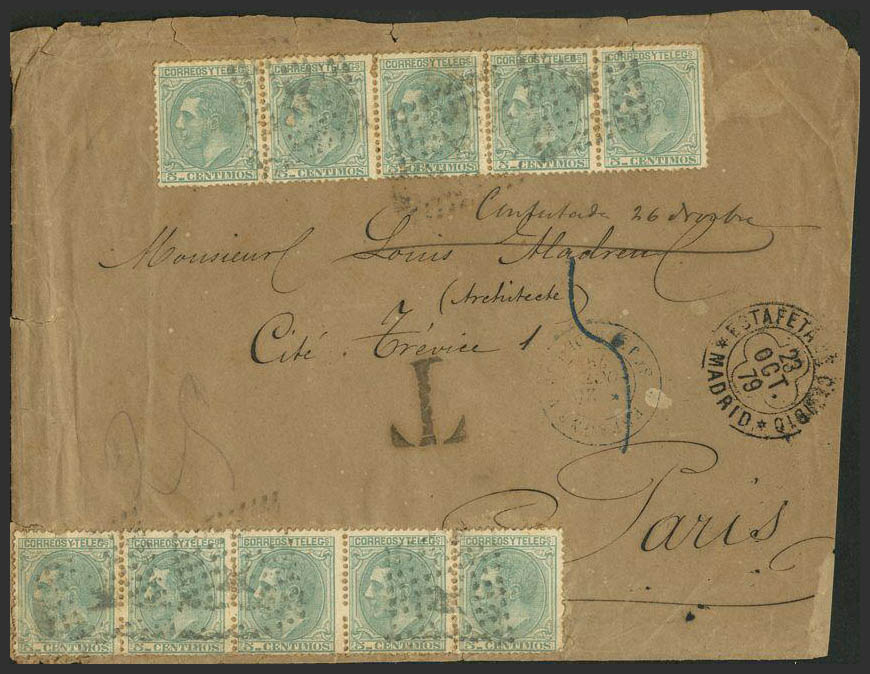 CORREOS Y TELEGs CORREOS Y TELEGs CORREOS Y TELEGs CORREOS Y TELEGs CORREOS Y TELEGs
5 CENTIMOS 5 CENTIMOS 5 CENTIMOS 5 CENTIMOS 5 CENTIMOS
26
Monsieur Louis
(Architecte)
Cité Trévice 1
ESTAFETA DE CAMBIO
23
OCT.
79
MADRID
T
Paris
CORREOS Y TELEGs CORREOS Y TELEGs CORREOS Y TELEGs CORREOS Y TELEGs CORREOS Y TELEGs
5 CENTIMOS 5 CENTIMOS 5 CENTIMOS 5 CENTIMOS 5 CENTIMOS